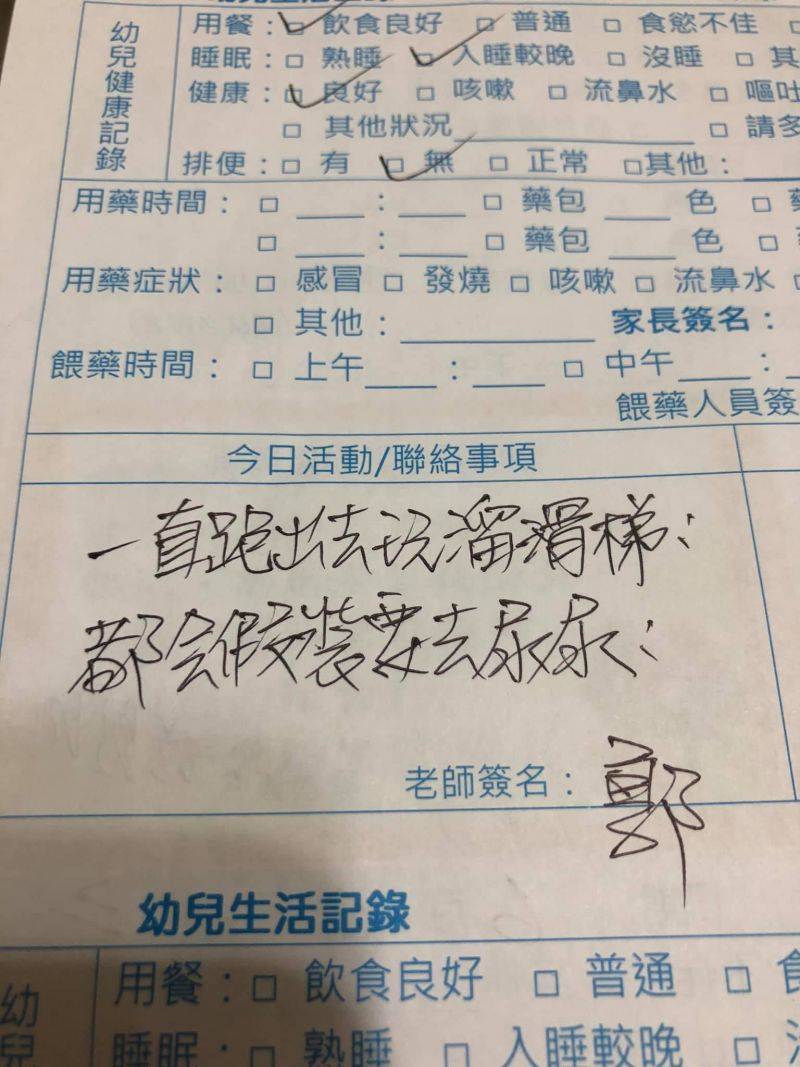 幼兒健康記錄
用餐:☑ 飲食良好 □ 普通 □ 食慾不佳 □
睡眠:□ 熟睡 ☑ 入睡較晚 □ 沒睡 □ 其
健康:☑ 良好 □ 咳嗽 □ 流鼻水 □ 嘔吐
□ 其他狀況________ □ 請多
排便:□ 有 ☑ 無 □ 正常 □其他:____
用藥時間: □ ____:____ □ 藥包 ____ 色 □
□ ____:____ □ 藥包 ____ 色 □
用藥症狀: □ 感冒 □ 發燒 □ 咳嗽 □ 流鼻水 □
□ 其他:________ 家長簽名:
餵藥時間: □ 上午____:____ □ 中午____:
餵藥人員簽
今日活動/聯絡事項
一直跑出去玩溜滑梯;
都會假裝要去尿尿;
老師簽名: 郭
幼兒生活記錄
幼兒
用餐:□ 飲食良好 □ 普通 □ 食
睡眠:□ 熟睡 □ 入睡較晚 □